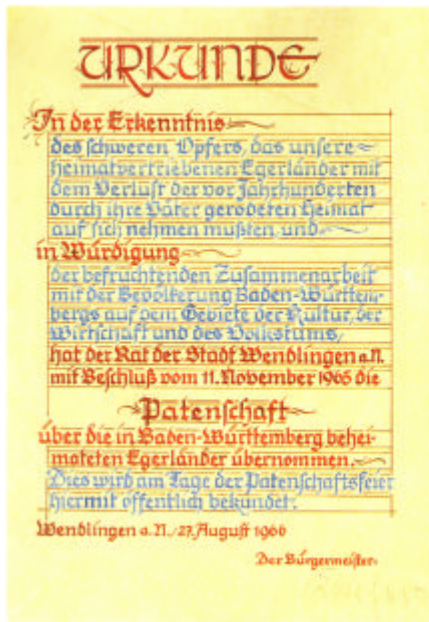 URKUNDE
In der Erkenntnis
des schweren Opfers, das unsere
heimatvertriebenen Egerländer mit
dem Verlust der vor Jahrhunderten
durch ihre Väter gerodeten Heimat
auf sich nehmen mußten und
in Würdigung
der befruchtenden Zusammenarbeit
mit der Bevölkerung Baden-Württem-
bergs auf dem Gebiete der Kultur, der
Wirtschaft und des Volkstums,
hat der Rat der Stadt Wendlingen a.N.
mit Beschluß vom 11. November 1965 die
Patenschaft
über die in Baden-Württemberg behei-
mateten Egerländer übernommen.
Dies wird am Tage der Patenschaftsfeier
hiermit öffentlich bekundet.
Wendlingen a. N., 27. August 1966
Der Bürgermeister